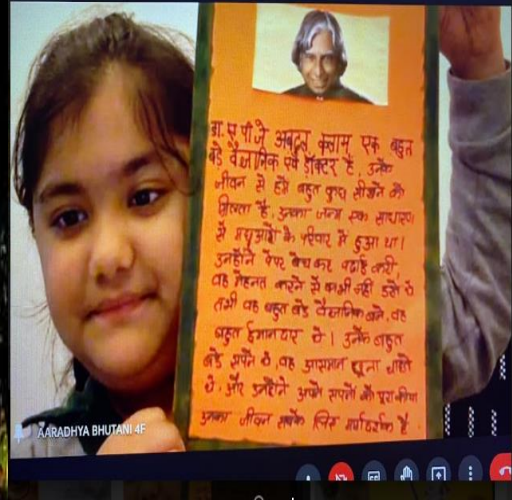 डा. ए पी जे अबदुल कलाम एक बहुत
बड़े वैज्ञानिक एवं डॉक्टर है, उनके
जीवन से हमे बहुत कुछ सीखने को
मिलता है, उनका जन्म एक साधारण
से मछुआरो के परिवार मे हुआ था।
उन्होंने पेपर बेच कर पढाई करी,
वह मेहनत करने से कभी नहीं डरते थे
तभी वह बहुत बड़े वैज्ञानिक बने, वह
बहुत ईमानदार थे। उनके बहुत
बड़े सपने थे, वह आसमान छूना चाहते
थे, और उन्होंने अपने सपनो को पूरा किया
उनका जीवन सबके लिए मार्गदर्शक है
AARADHYA BHUTANI 4F